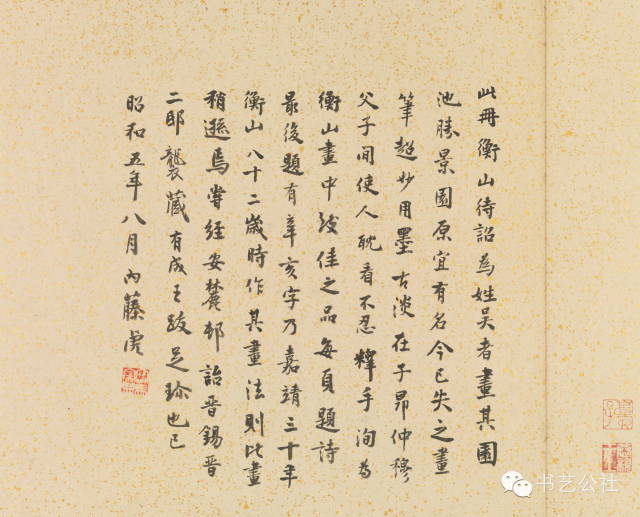 此冊衡山待詔為姓吴者畫其園
池勝景園原宜有名今已失之畫
筆超妙用墨古淡在子昂仲穆
父子間使人耽看不忍釋手洵為
衡山畫中致佳之品每頁題詩
最後題有辛亥字乃嘉靖三十年
衡山八十二歲時作其畫法則比畫
稍遜焉嘗經安麓邨詒晉錫晉
二邸襲藏有成王跋足珍也已
昭和五年八月內藤虎
书艺公社